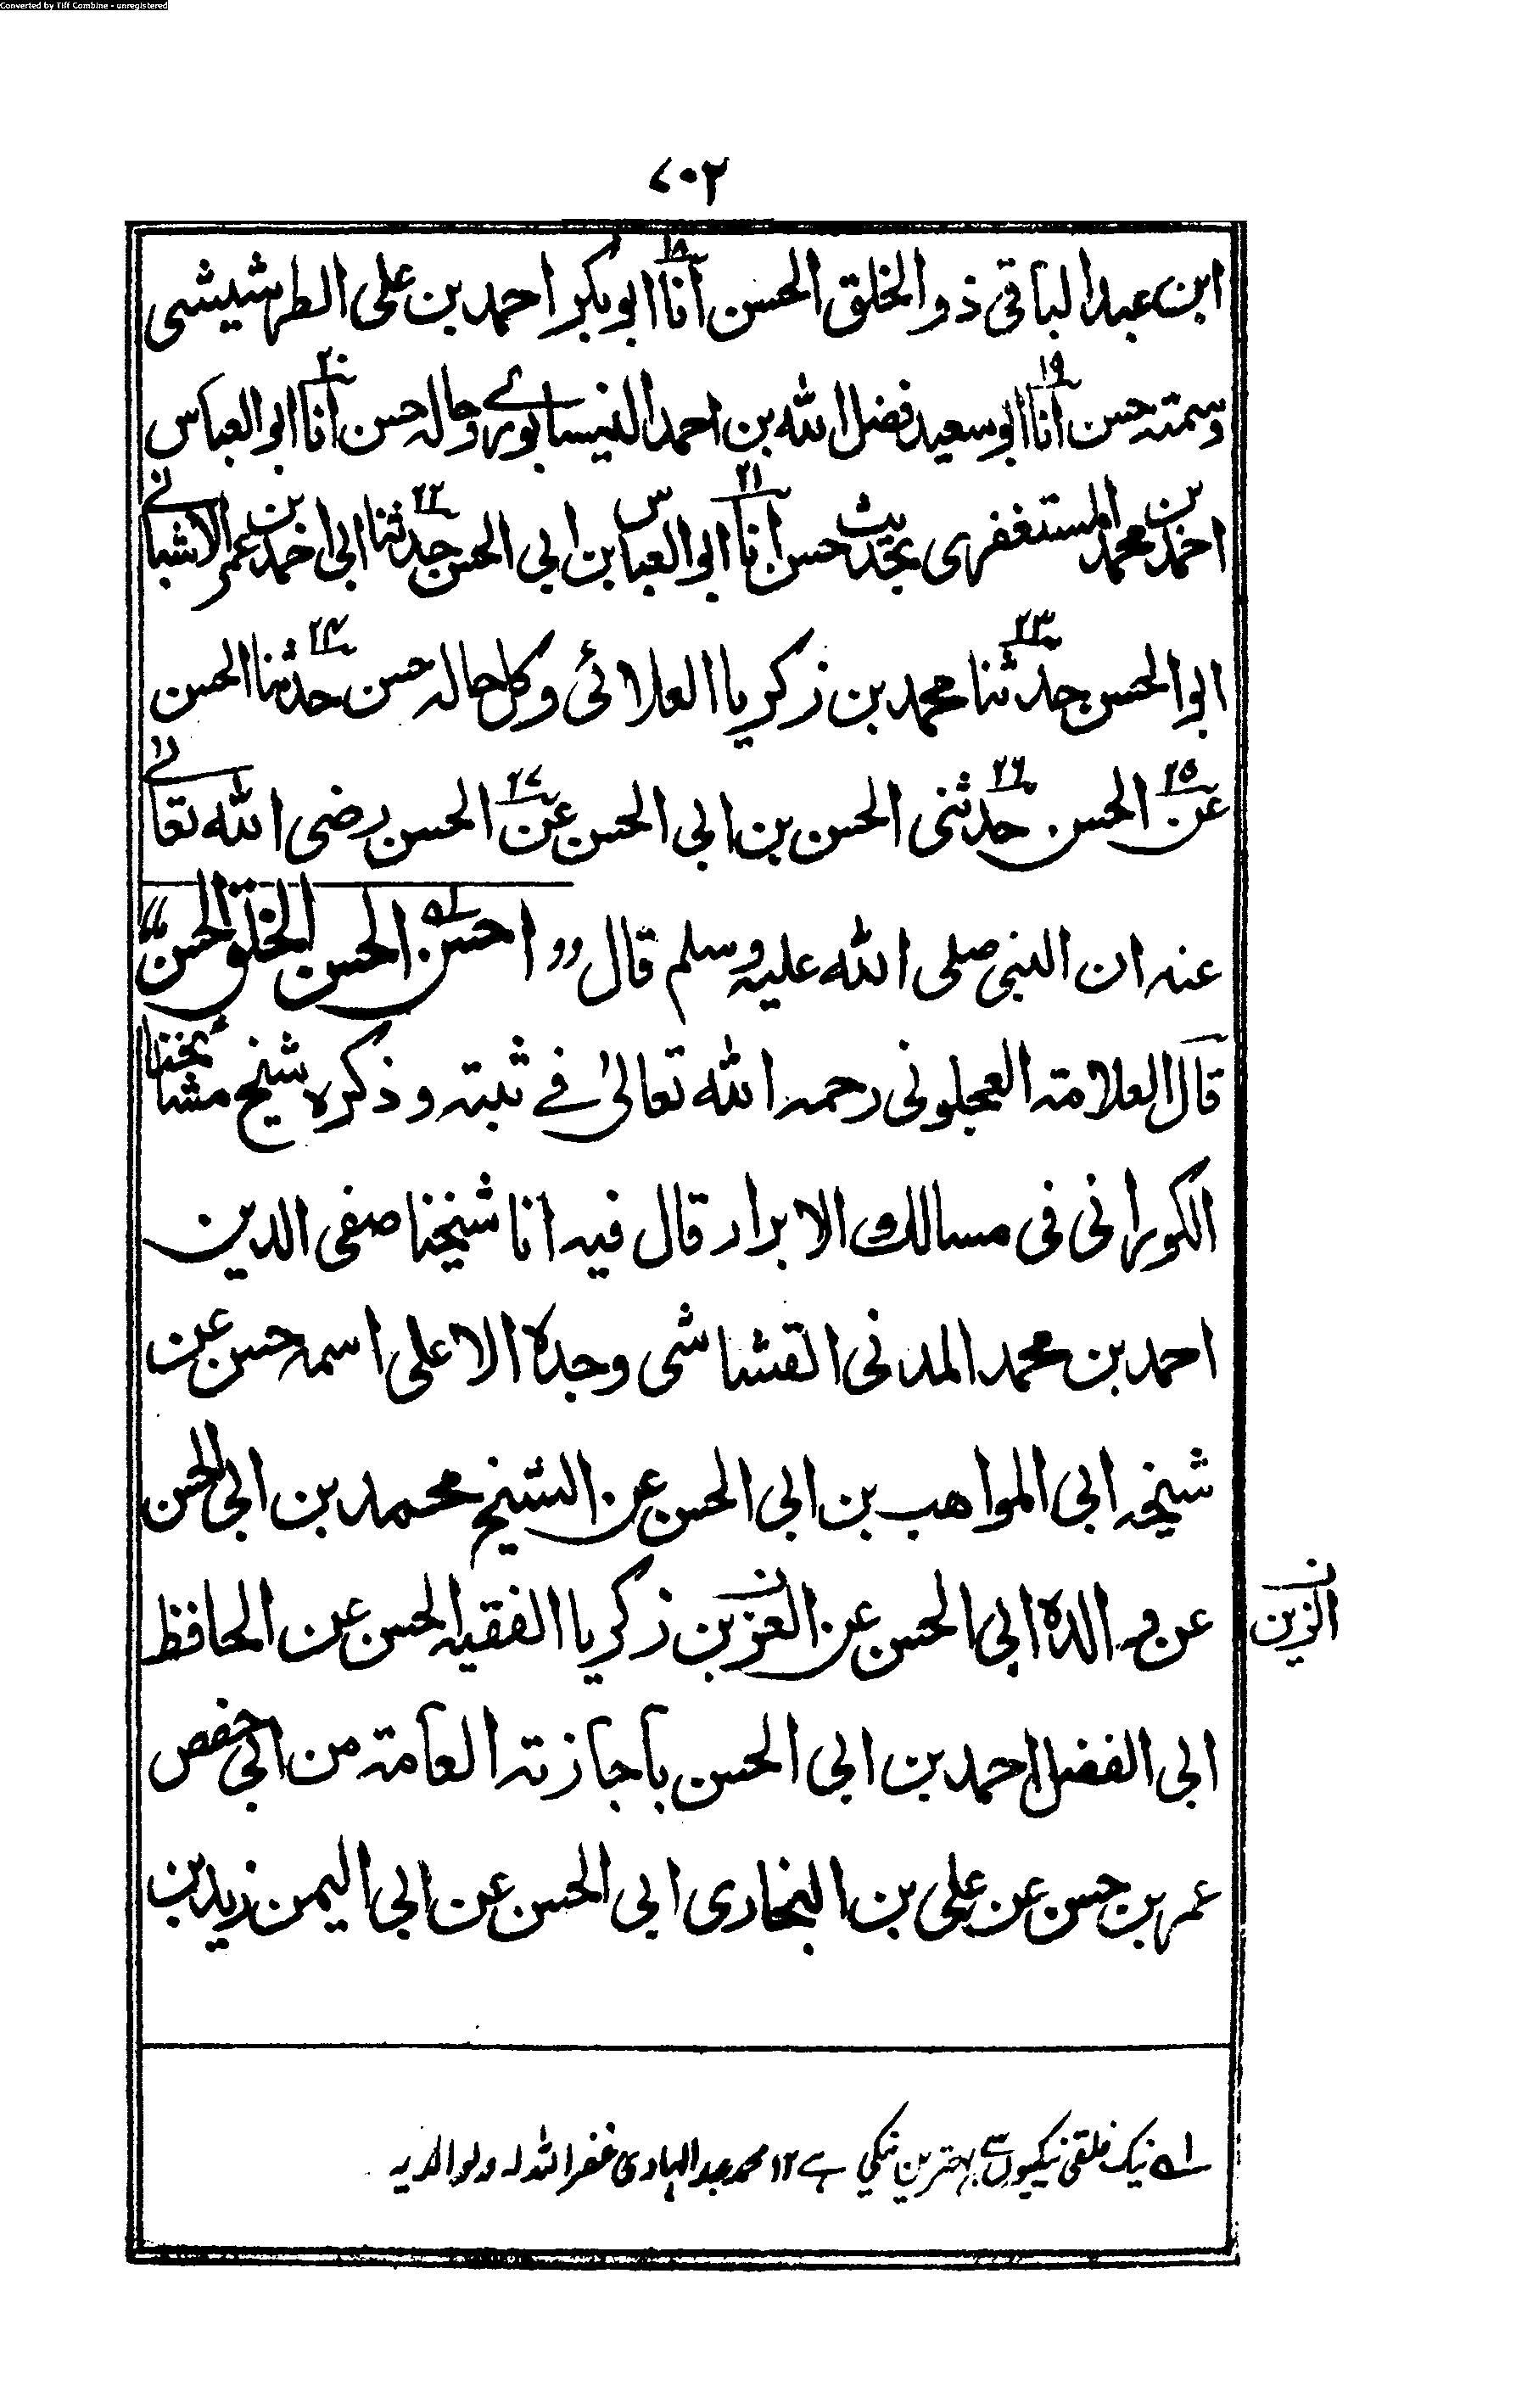 Converted by Tiff Combine - unregistered
۷۰۲
ابن عبد الباقی ذو الخلق الحسن انا۱۸ ابو بکر احمد بن علی الطرشیشی
وسمته حسن انا۱۹ ابو سعید فضل الله بن احمد النیسابوری وحاله حسن انا۲۰ ابو العباس
احمد بن محمد المستغفری بحدیث حسن انا۲۱ ابو العباس بن ابی الحسن حدثنا۲۲ ابی احمد بن عمر الاشبانی
ابو الحسن حدثنا۲۳ محمد بن زکریا العلائی وکل حاله حسن حدثنا۲۴ الحسن
عن۲۵ الحسن حدثنی۲۶ الحسن بن ابی الحسن عن۲۷ الحسن رضی الله تعالی
عنه ان النبی صلی الله علیه وسلم قال "احسن۱ الحسن الخلق الحسن"
قال العلامة العجلونی رحمه الله تعالیٰ فی ثبته وذکره شیخ مشائخنا
الکورانی فی مسالک الابرار قال فیه انا شیخنا صفی الدین
احمد بن محمد المدنی القشاشی وجده الاعلی اسمه حسن عن
شیخه ابی المواهب بن ابی الحسن عن الشیخ محمد بن ابی الحسن
عن والده ابی الحسن عن العز بن زکریا الفقیه الحسن عن الحافظ
الزین
ابی الفضل احمد بن ابی الحسن باجازته العامة من ابی حفص
عمر بن حسن عن علی بن البخاری ابی الحسن عن ابی الیمن زید بن
۱ نیک خلقی نیکیوں سے بہترین نیکی ہے ۱۲ محمد عبد الہادی غفر اللہ لہ ولوالدیہ